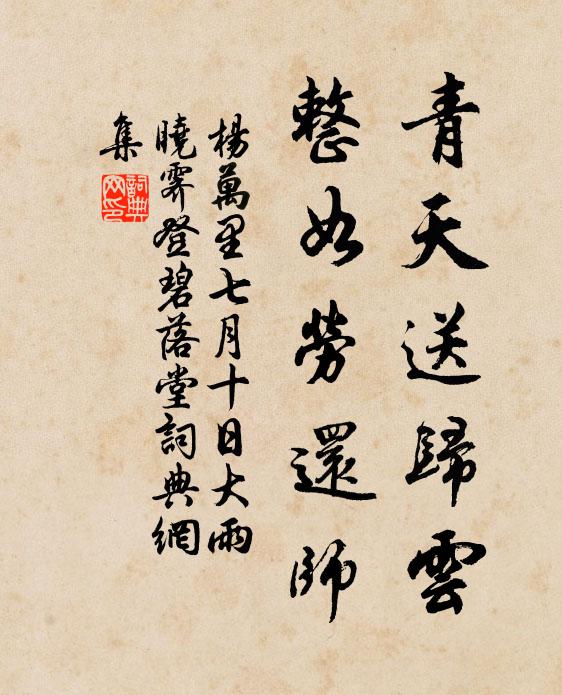 青天送歸雲
整如勞還師
楊萬里七月十日大雨
曉霽登碧落堂詞典網
集
詞典网印